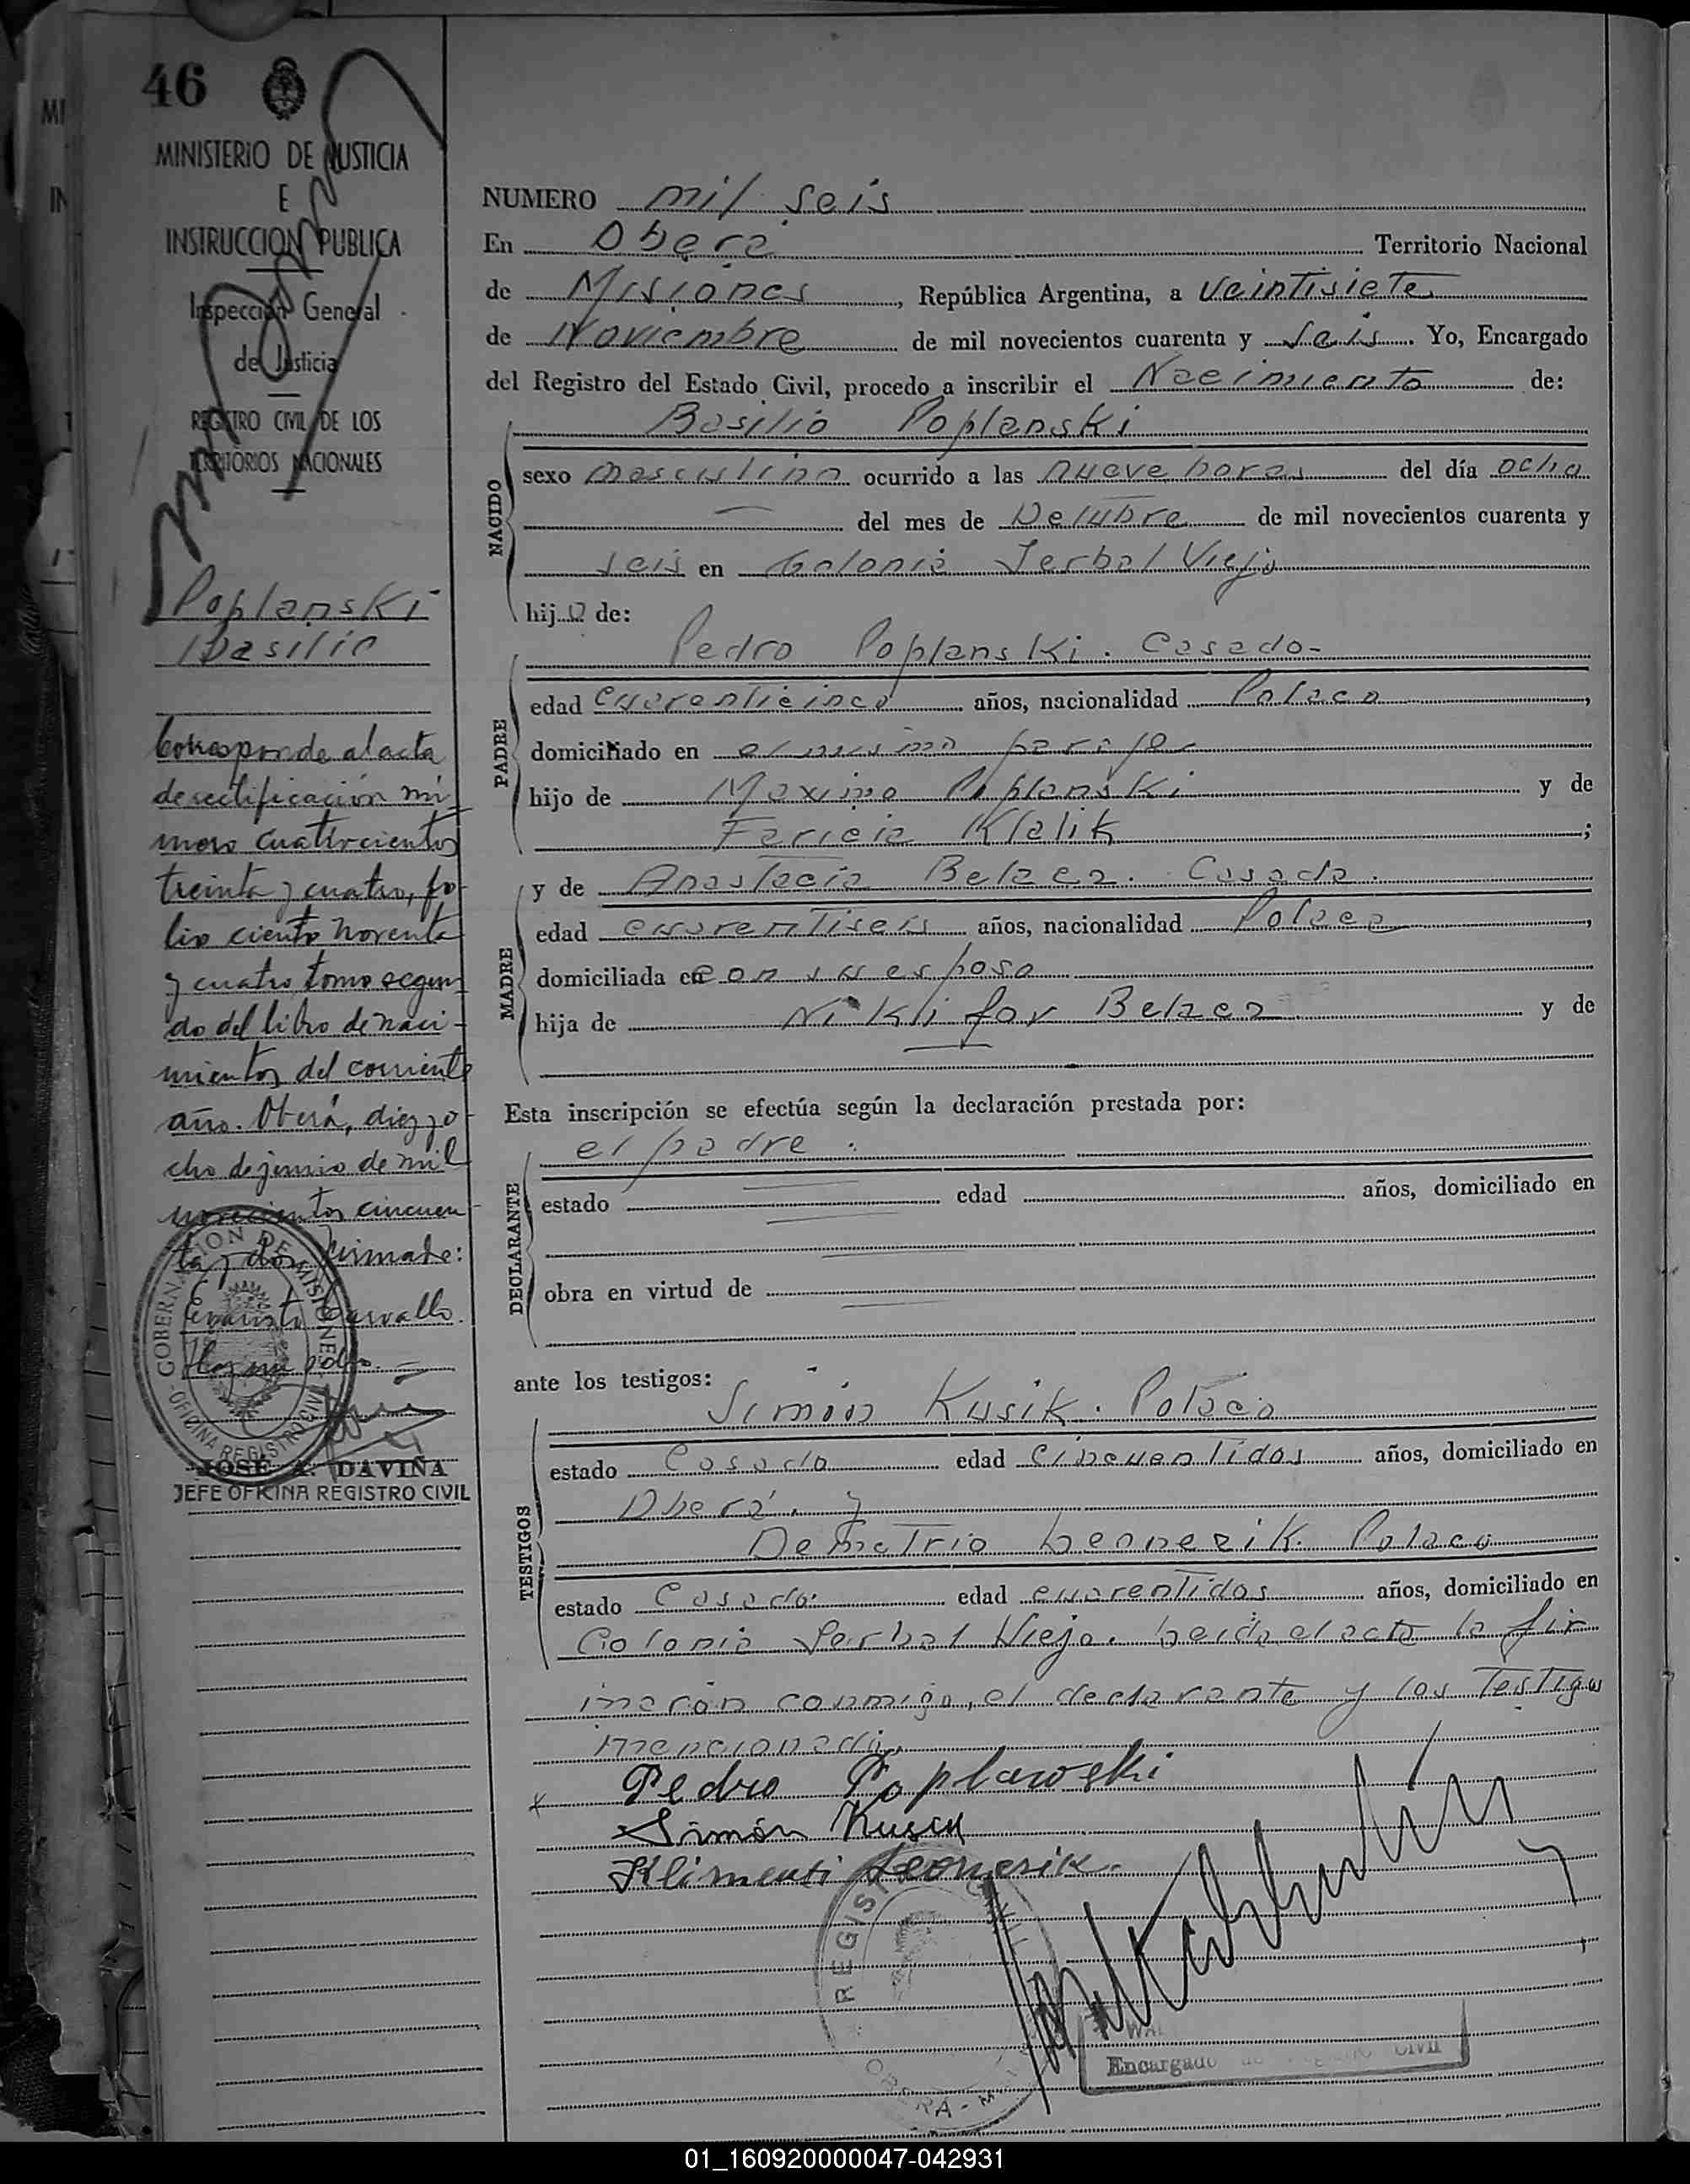 46
MINISTERIO DE JUSTICIA
E
INSTRUCCION PUBLICA
Inspección General
de Justicia
REGISTRO CIVIL DE LOS
TERRITORIOS NACIONALES
Poplanski
Basilio
Corresponde al acta
de rectificación nú-
mero cuatrocientos
treinta y cuatro, fo-
lio ciento noventa
y cuatro tomo segun-
do del libro de naci-
mientos del corriente
año. Oberá, diez y o-
cho de junio de mil
novecientos cincuen-
ta y dos Firmate:
Evaristo Carvallo.
GOBERNACION DE MISIONES
OFICINA REGISTRO CIVIL
JOSÉ A. DAVIÑA
JEFE OFICINA REGISTRO CIVIL
NUMERO mil seis
En Oberá Territorio Nacional
de Misiones, República Argentina, a veintisiete
de Noviembre de mil novecientos cuarenta y seis. Yo, Encargado
del Registro del Estado Civil, procedo a inscribir el Nacimiento de:
NACIDO
Basilio Poplanski
sexo masculino ocurrido a las nueve horas del día ocho
del mes de Octubre de mil novecientos cuarenta y
seis en Colonia Yerbal Viejo
hijo de:
PADRE
Pedro Poplanski. Casado-
edad cuarenticinco años, nacionalidad Polaco,
domiciliado en el mismo paraje
hijo de Maximo Poplanski y de
Klalik;
MADRE
y de Anastacia Belzea. Casada.
edad cuarentiseis años, nacionalidad Polaca,
domiciliada en con su esposo
hija de Nikifor Belzea y de
Esta inscripción se efectúa según la declaración prestada por:
DECLARANTE
el padre.
estado edad años, domiciliado en
obra en virtud de
ante los testigos:
TESTIGOS
Simón Kusik. Polaco
estado Casado edad cincuentidos años, domiciliado en
Oberá. y
Demetrio Leonezik. Polaco
estado Casado. edad cuarentidos años, domiciliado en
Colonia Yerbal Viejo. Leida el acta la fir
marón conmigo, el declarante y los Testigos
mencionado.
x Pedro Poplawski
Simón Kusik
Klimenti Leonesik.
REGISTRO CIVIL
OBERA - M
Encargado de Registro Civil
01_160920000047-042931